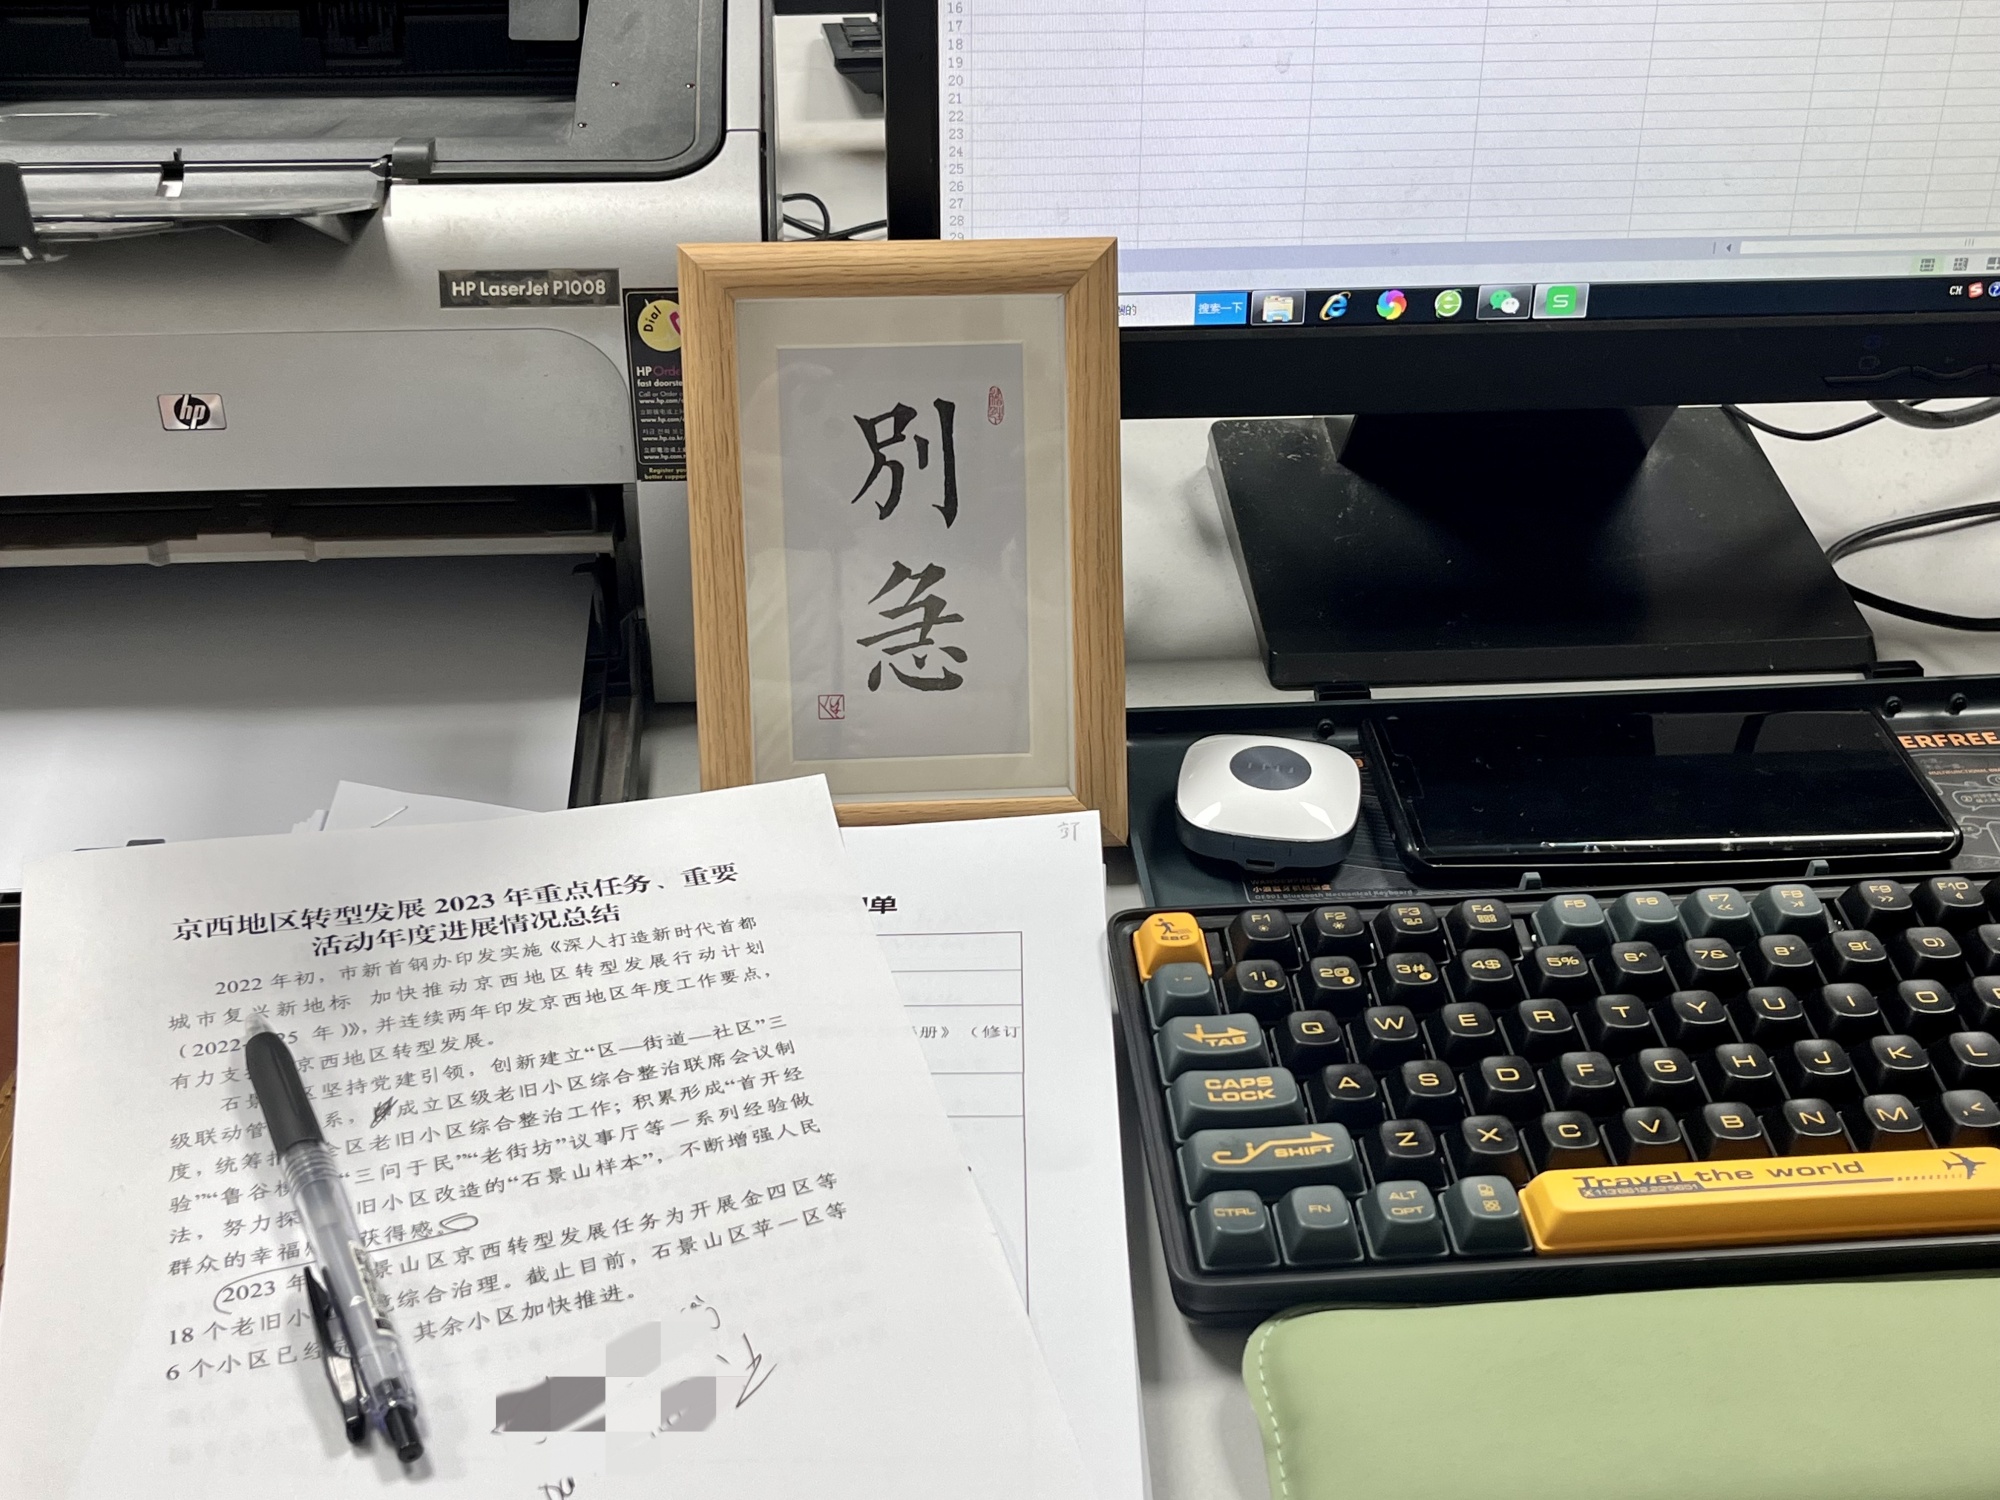 16
17
18
19
20
21
22
23
24
25
26
27
28
29
搜索一下
CH
HP LaserJet P1008
hp
Dial
HP Orde
fast doorste
Call or Order
www.hp.com/
www.hp.co.kr
www.hp.com
Register you
better suppor
別
急
ERFREE
小派蓝牙机械键盘
DE901 Bluetooth Mechanical Keyboard
京西地区转型发展 2023 年重点任务、重要
活动年度进展情况总结
2022 年初，市新首钢办印发实施《深入打造新时代首都
城市复兴新地标 加快推动京西地区转型发展行动计划
（2022- 25 年）》，并连续两年印发京西地区年度工作要点，
有力支 京西地区转型发展。
石景 区坚持党建引领，创新建立“区—街道—社区”三
级联动管 系， 成立区级老旧小区综合整治联席会议制
度，统筹 全区老旧小区综合整治工作；积累形成“首开经
验”“鲁谷 “三问于民”“老街坊”议事厅等一系列经验做
法，努力探 旧小区改造的“石景山样本”，不断增强人民
群众的幸福 获得感。
2023 年 景山区京西转型发展任务为开展金四区等
18 个老旧小 综合治理。截止目前，石景山区苹一区等
6 个小区已经 其余小区加快推进。
单
册》（修订
ESC F1 F2 F3 F4 F5 F6 F7 F8 F9 F10
1! 2@ 3# 4$ 5% 6^ 7& 8* 9( 0)
TAB Q W E R T Y U I O
CAPS LOCK A S D F G H J K L
SHIFT Z X C V B N M ,<
CTRL FN ALT OPT
Travel the world